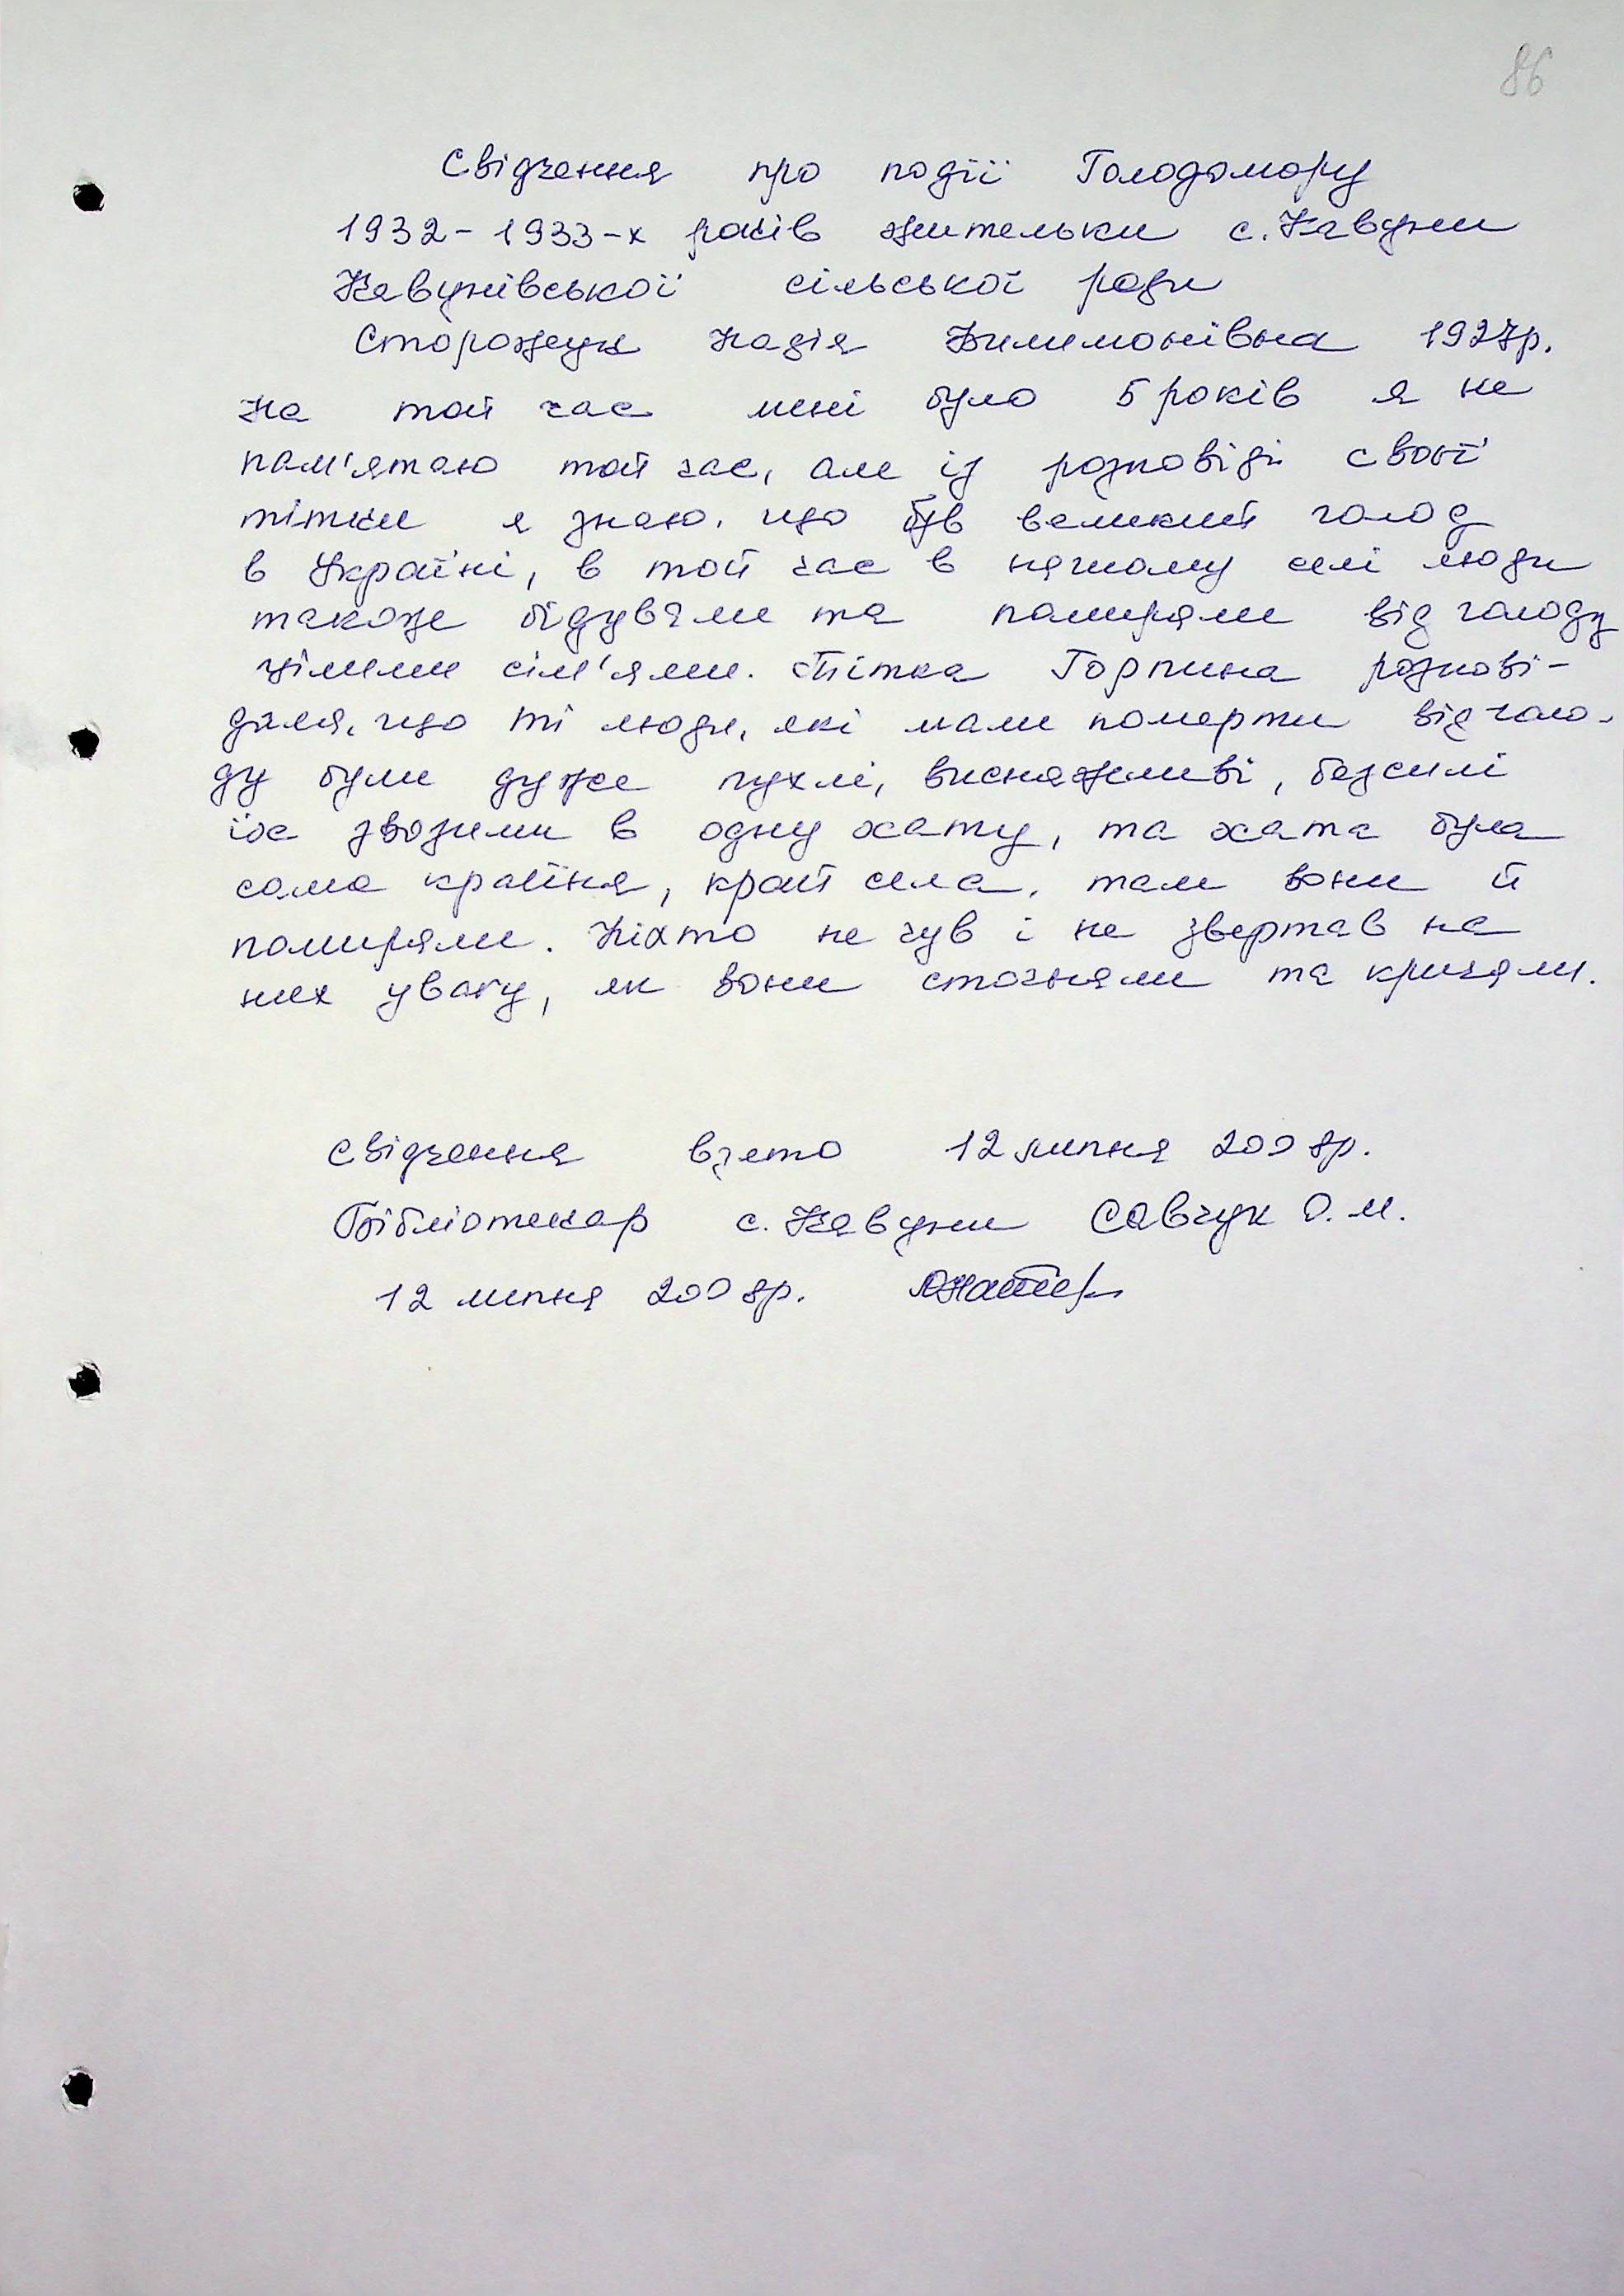 86
Свідчення про події Голодомору
1932-1933-х років жительки с. Кавуни
Кавунівської сільської ради
Сторожук Надія Филимонівна 1927р.
На той час мені було 5 років я не
пам'ятаю той час, але із розповіді своєї
тітки я знаю, що був великий голод
в Україні, в той час в нашому селі люди
також бідували та помирали від голоду
цілими сім'ями. Тітка Горпина розпові-
дала, що ті люди, які мали померти від голо-
ду були дуже пухлі, виснажливі, безсилі
їх звозили в одну хату, та хата була
сама крайня, край села, там вони й
помирали. Ніхто не чув і не звертав на
них увагу, як вони стогнали та кричали.
Свідчення взято 12 липня 2008р.
Бібліотекар с. Кавуни Савчук О.М.
12 липня 2008р.